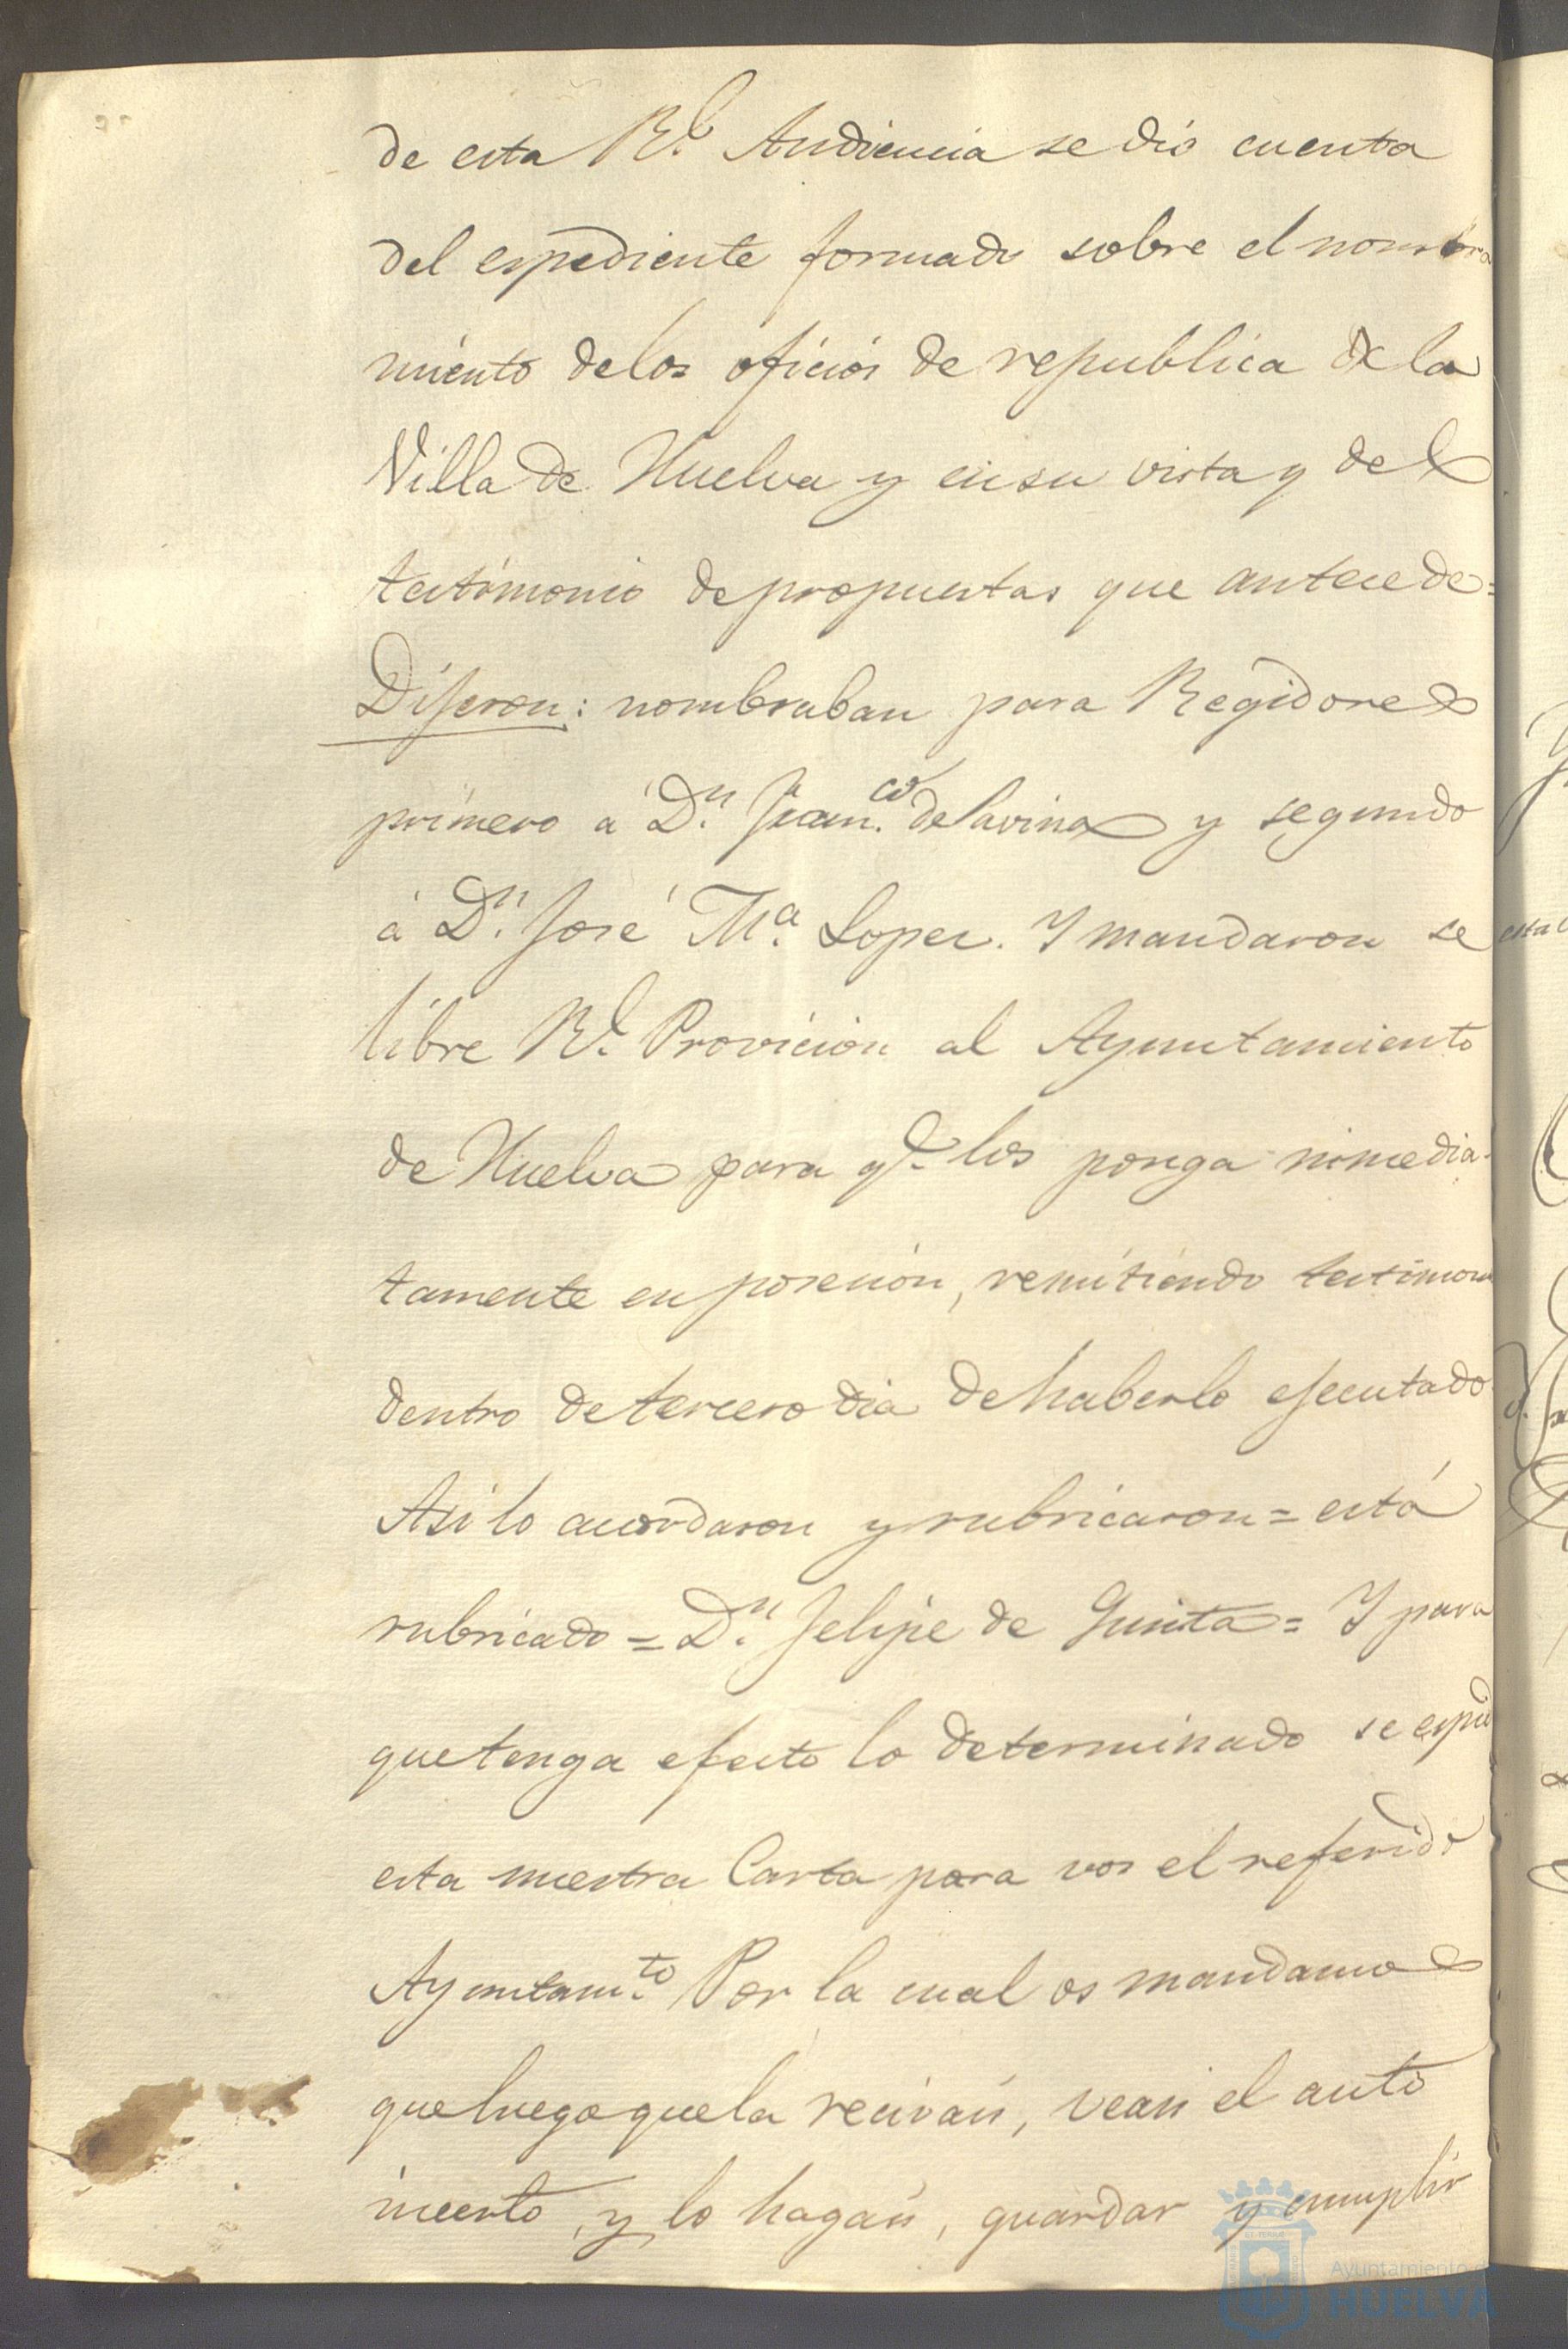 de esta Rl. Audiencia se dió cuenta
del espediente formado sobre el nombra
miento de los oficios de republica de la
Villa de Huelva y en su vista y del
testimonio de propuestas que antecede=
Dijeron: nombraban para Regidores
primero á Dn. Franco. de Savina y segundo
á Dn. José Ma. Lopez. Y mandaron se
libre Rl. Provicion al Ayuntamiento
de Huelva para qe. los ponga inmedia-
tamente en posesión, remitiendo testimon
dentro de tercero dia de haberlo ejecutado
Asi lo acordaron y rubricaron = está
rubricado = Dn. Felipe de = Y para
que tenga efecto lo determinado se espid
esta nuestra Carta para vos el referido
Ayuntamto. Por la cual os mandamos
que luego que la recivais, veais el auto
inserto, y lo hagais, guardar y cumplir
Ayuntamiento d
HUELVA